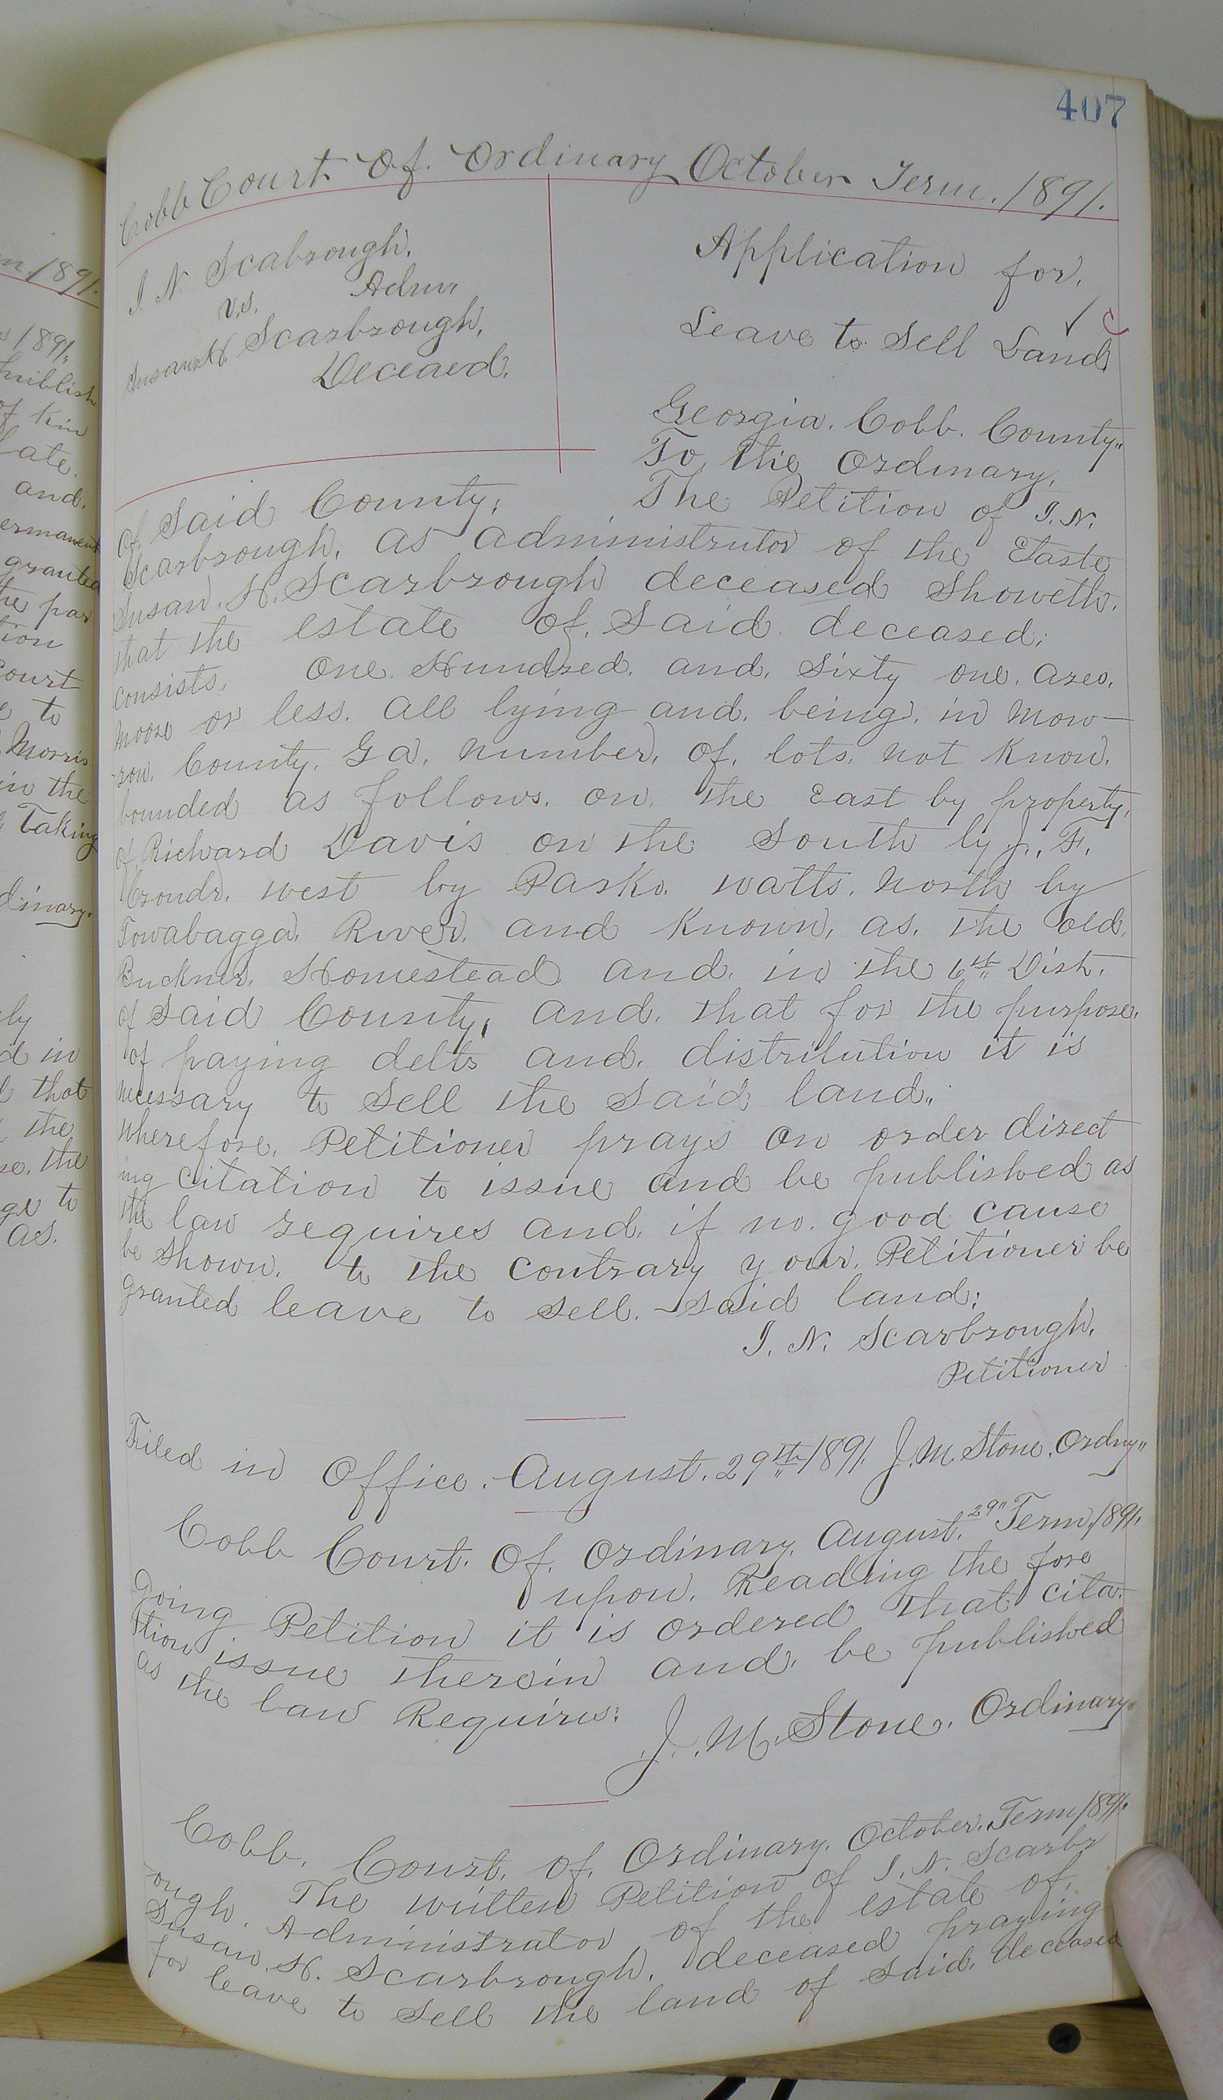 407
Cobb Court Of. Ordinary October Term. 1891.
I. N. Scabrough.
Admr
vs.
Susan H. Scarbrough,
Deceaed.
Application for.
Leave to Sell Land
Georgia. Cobb. County"
To the Ordinary.
of Said County, The Petition of I. N.
Scarbrough, as administrator of the Etaste
Susan. H. Scarbrough deceased Showeth.
that the estate of. Said deceased;
consists. One Hundred. and. Sixty one. acres.
moore or less. all lying and. being. in Mow-
-row. County. Ga. number. of. lots. not Know.
bounded as follows. on. the East by property.
of Richard Davis on the South by J. F.
west by Parks. watts. North by
Towabagga. River. and Known. as. the old.
Buckner. Homestead and. in the 6th Dist.
of Said County, and. that for the purpose.
of paying debts and. distribution it is
necessary to Sell the Said land.,
Wherefore. Petitioner prays an order direct
ing citation to issue and be published as
the law requires and. if no. good cause
be Shown. to the contrary your. Petitioner be
granted leave to Sell. Said land;
I. N. Scarbrough.
Petitioner
Filed in Office. August. 29th 1891. J. M. Stone. Ordny"
Cobb Court. Of. Ordinary. August. 29" Term, 1891.
upon. Reading the fore
going Petition it is ordered that cita-
tion issue therein and. be published
as the law Requires:
J. M. Stone. Ordinary"
Cobb. Court. of. Ordinary. October. Term 1891.
The written Petition of I. N. Scarbr
ough. Administrator of the estate of.
Susan. H. Scarbrough. deceased praying
for leave to Sell the land of Said. deceased
m 1891.
1891.
publish
of Kin
ate.
and.
ermanent
granted
the par
tion
court
to
Morris
in the
Taking
dinary.
ly
d in
that
the
se. the
ge to
as.